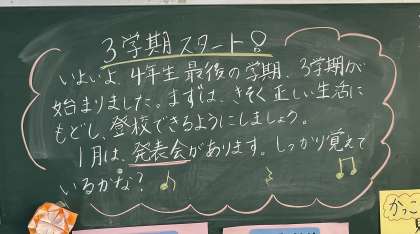 3学期スタート!
いよいよ4年生最後の学期、3学期が
始まりました。まずは、きそく正しい生活に
もどし、登校できるようにしましょう。
1月は、発表会があります。しっかり覚えて
いるかな?
かっこ